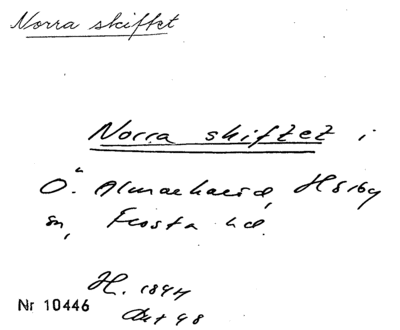 Norra skiftet
Norra skiftet i
Ö. Almarhaud, Hörby
sn, Frosta hd.
H. 1894
Akt 98
Nr 10446